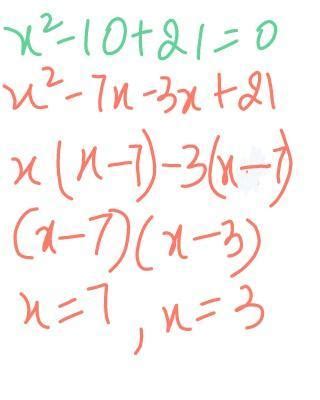 x²-10+21=0
x²-7x-3x+21
x(x-7)-3(x-7)
(x-7)(x-3)
x=7, x=3